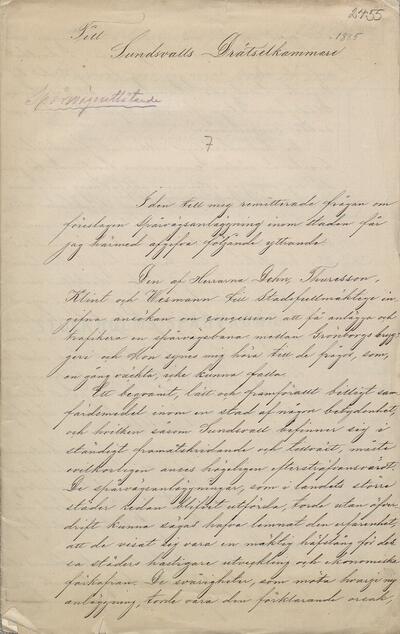 2455
Till
1885
Sundsvalls Drätselkammare
Spårvägsutlåtande
7
I den till mig remitterade frågan om
föreslagen Spårvägsanläggning inom staden får
jag härmed afgifva följande yttrande.
Den af Herrarna Dehn, Thuresson,
Klint och Wesmann till Stadsfullmäktige in
gifna ansökan om concession att få anlägga och
trafikera en spårvägsbana mellan Grönborgs bryg
geri och Hon synes mig höra till de frågor, som,
en gång väckta, icke kunna falla.
Ett beqvämt, lätt och framförallt billigt sam
färdsmedel inom en stad af någon betydenhet,
och hvilken såsom Sundsvall befinner sig i
ständigt framåtskridande och tillväxt, måste
ovilkorligen anses högeligen eftersträfvansvärdt.
De spårvägsanläggningar, som i landets större
städer redan blifvit utförda, torde utan öfver
drift kunna sägas hafva lemnat den erfarenhet,
att de visat sig vara en mäktig häfstång för des
sa städers hastigare utveckling och ekonomiska
förkofran. De svårigheter, som möta hvarje ny
anläggning, torde vara den förklarande orsak,